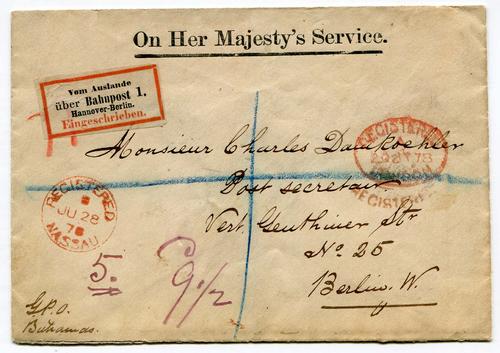 On Her Majesty's Service.
Vom Auslande
über Bahnpost 1.
Hannover-Berlin.
Eingeschrieben.
REGISTERED
78
Monsieur Charles Dankoehler
Post secretair
REGISTERED
JU 28
78
NASSAU
REGISTERED
Vert. Genthiner Str
No. 25
Berlin. W.
5.
9 1/2
G.P.O.
Bahamas.